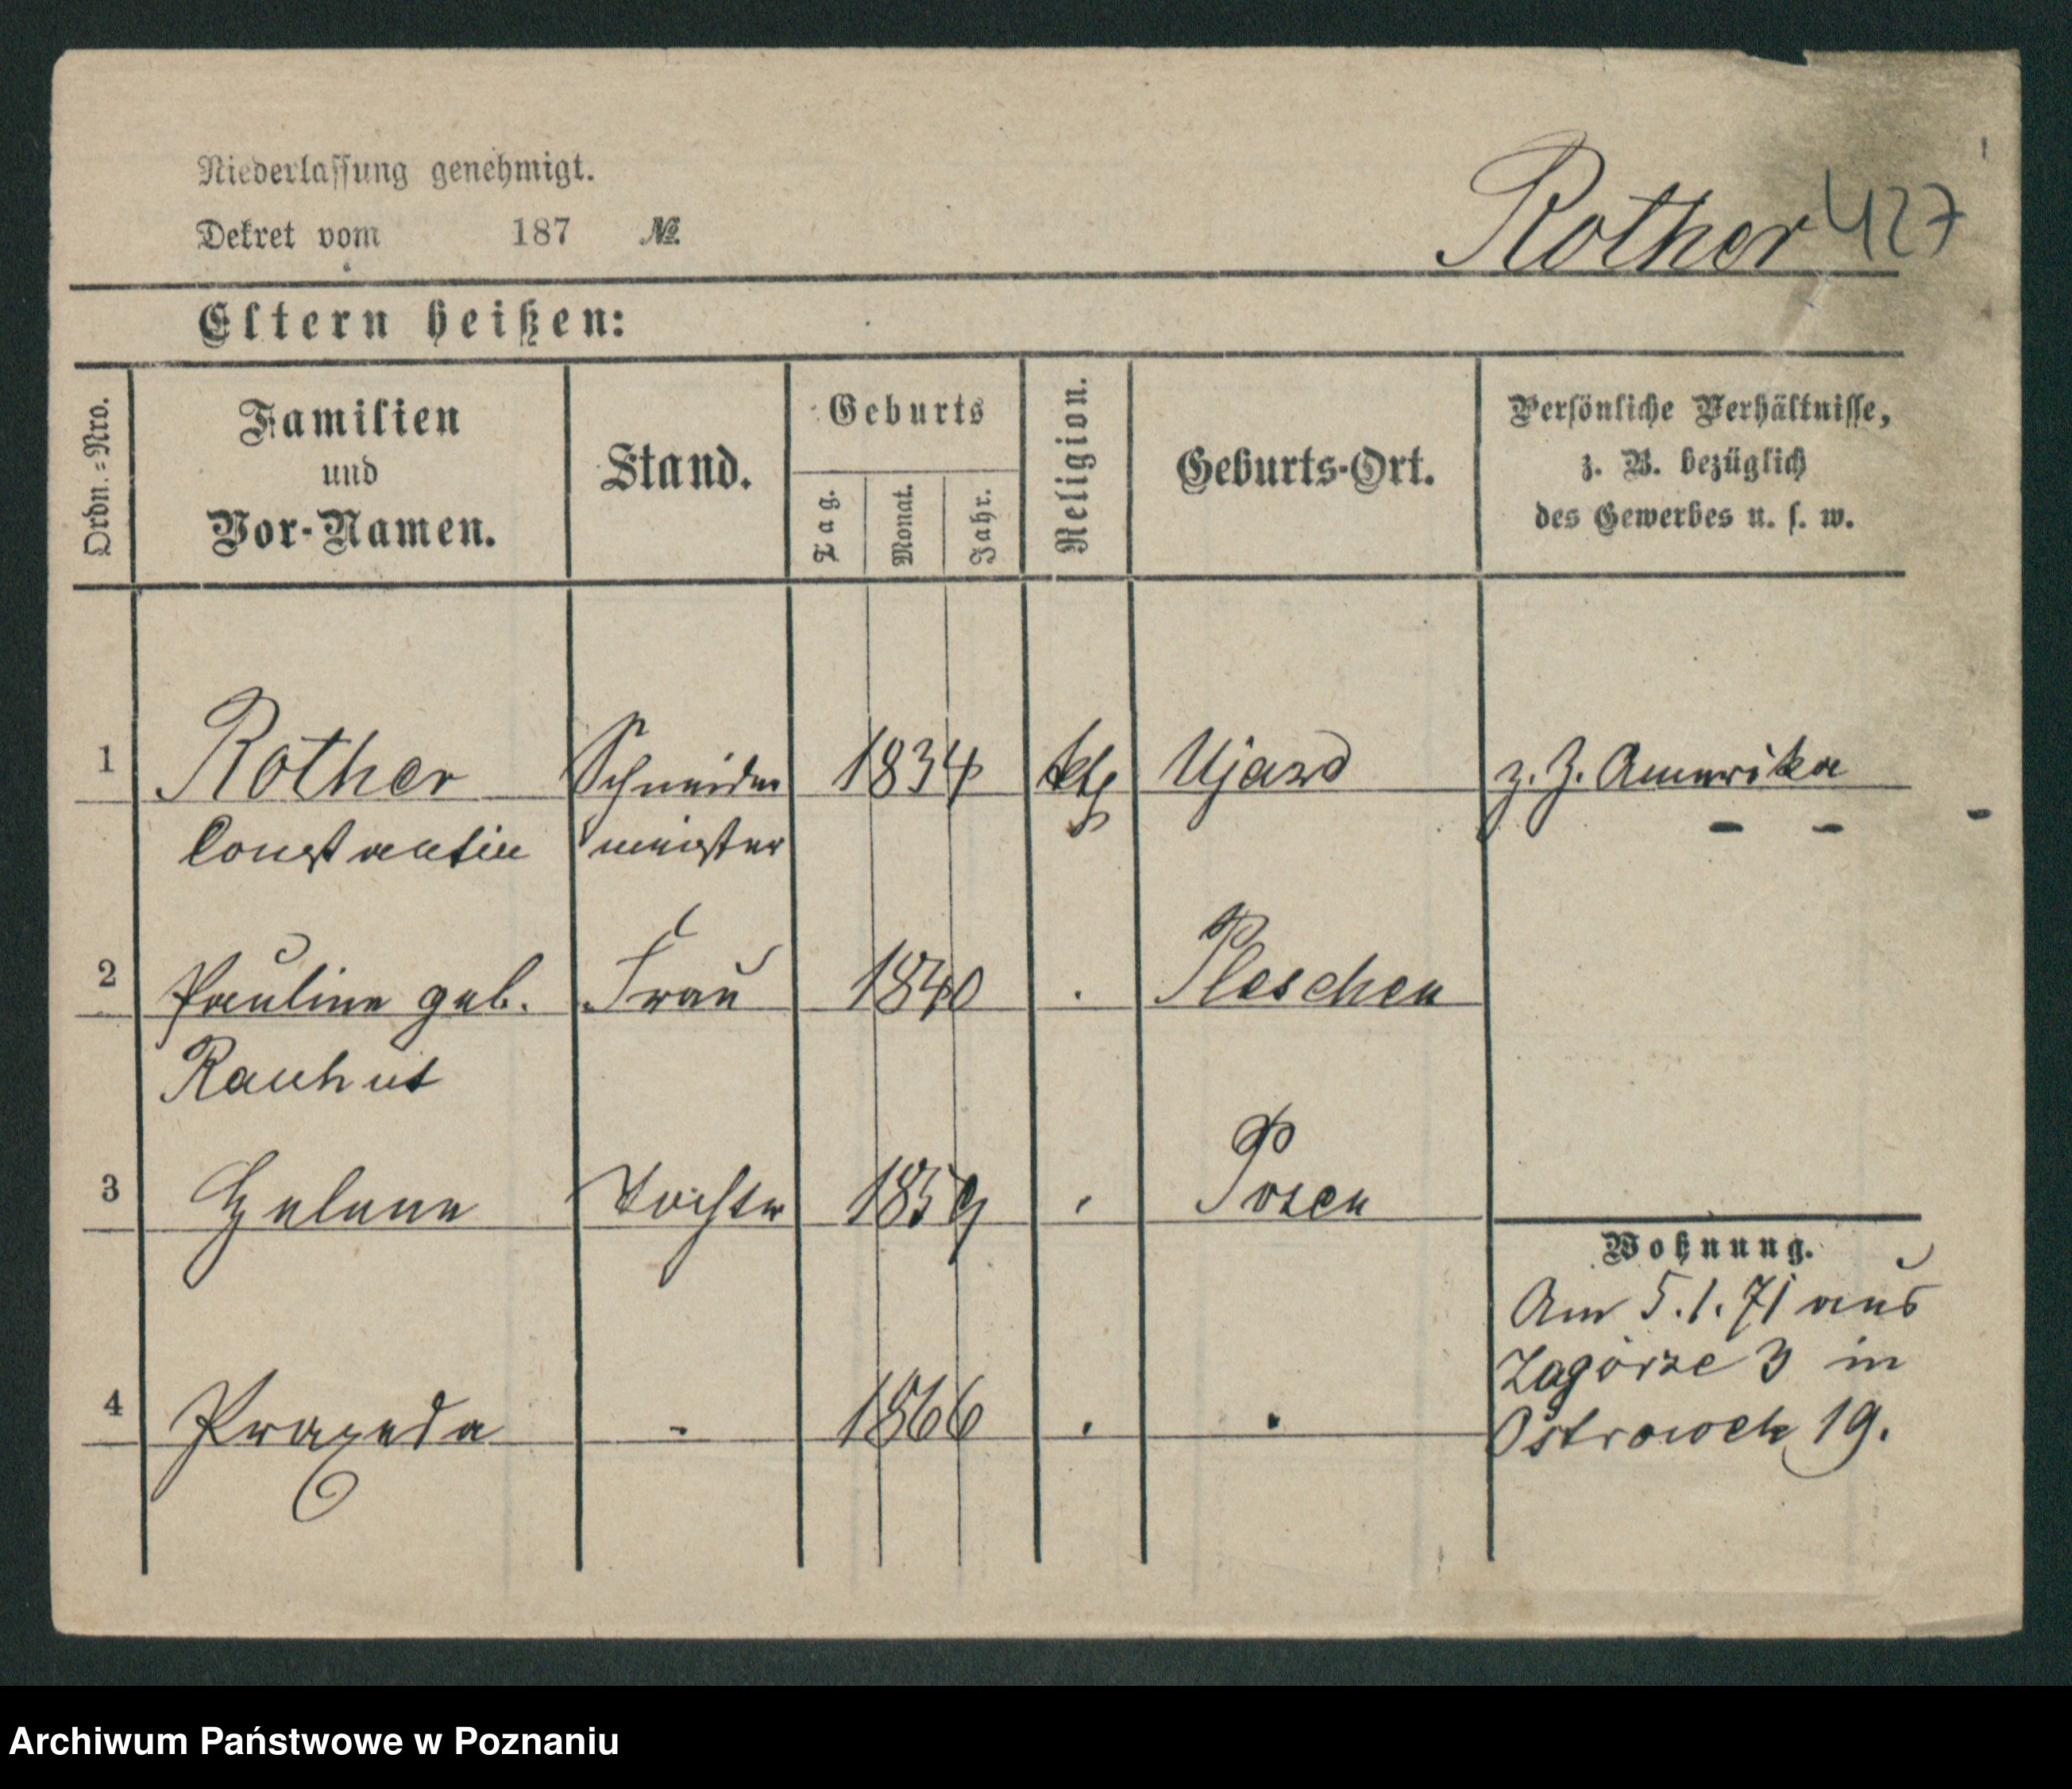 Niederlassung genehmigt.
Dekret vom 187 №
Rother 427
Eltern heißen:
Ordn.=Nro.
Familien
und
Vor-Namen.
Stand.
Geburts
Tag.
Monat.
Jahr.
Religion.
Geburts-Ort.
Persönliche Verhältnisse,
z. B. bezüglich
des Gewerbes u. s. w.
1 Rother Schneider 1834 kth Ujazd z. Z. Amerika
Constantin meister - - -
2 Pauline geb. Frau 1840 . Pleschen
Rauhut
3 Helene Tochter 1859 . Posen
Wohnung.
Am 5.1.71 aus
Zagorze 3 in
Ostrowek 19.
4 Praxeda - 1866 . .
Archiwum Państwowe w Poznaniu